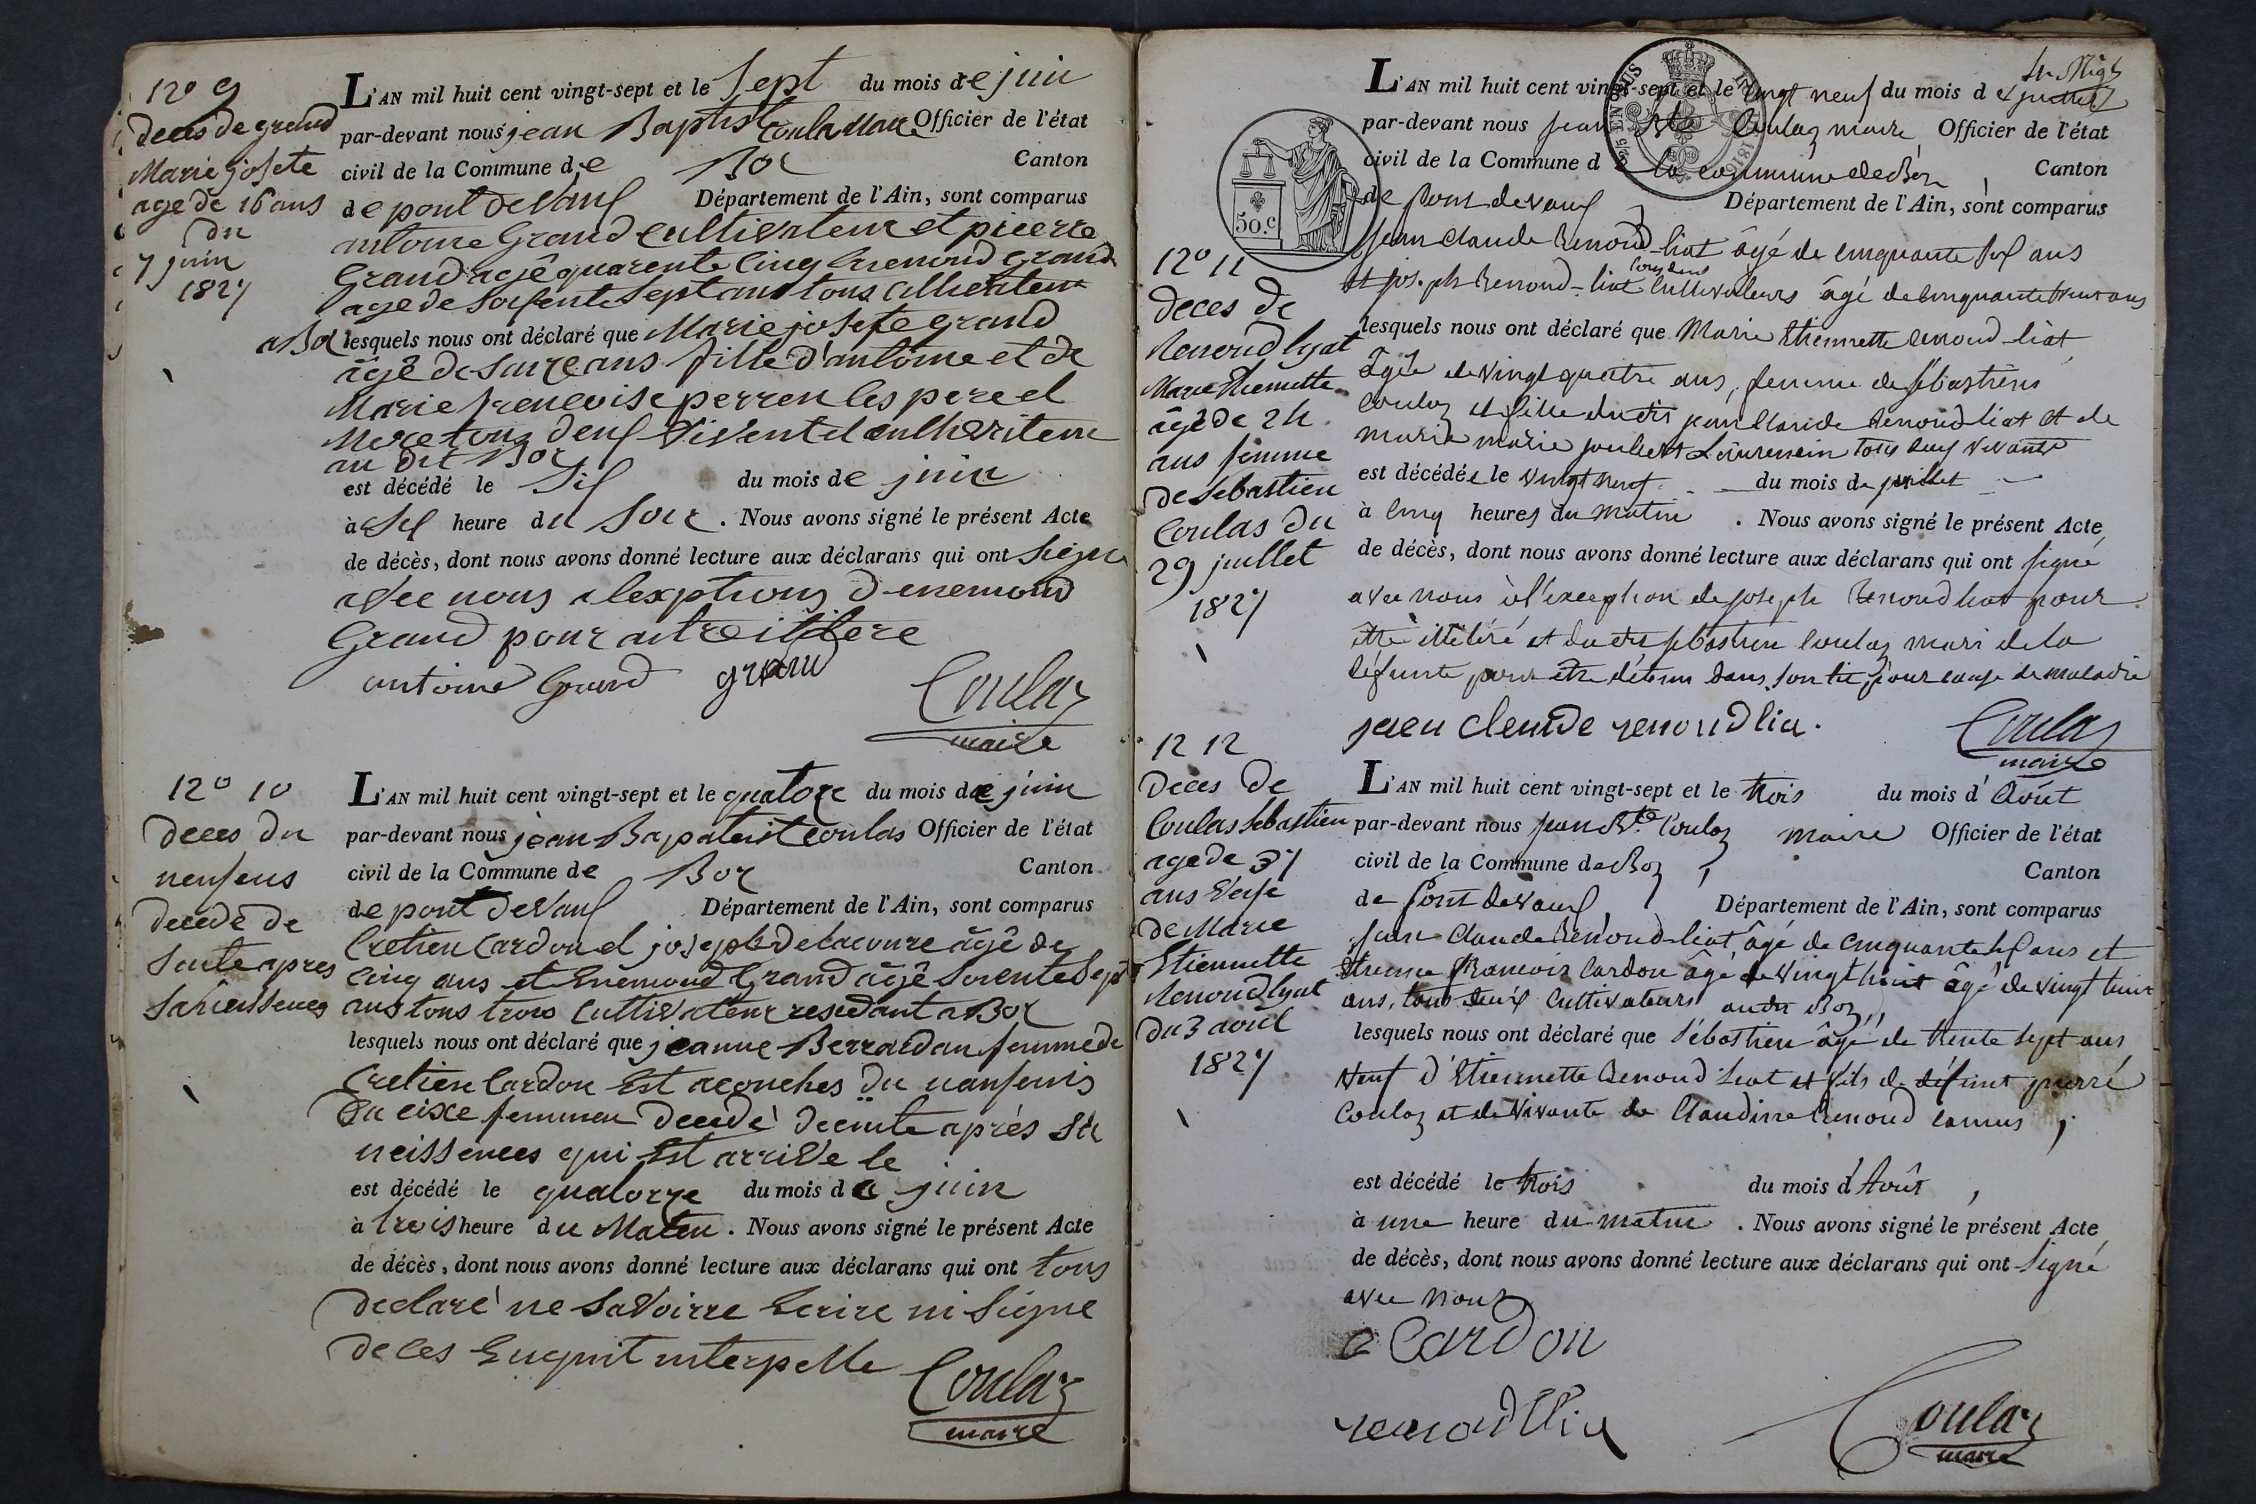 12° 9
deces de grand
Marie josete
age de 16 ans
du
7 juin
1827
L'AN mil huit cent vingt-sept et le Sept du mois de juin
par-devant nous jean Baptist Coula Maire Officier de l'état
civil de la Commune de Boz Canton
de pont devaux Département de l'Ain, sont comparus
antoine Grand cultivateur et pierre
Grand agé quarente Cinq Enemond Grand
age de Soisente Sept ans tous
a Boz lesquels nous ont déclaré que Marie josefte grand
âgé de Saize ans fille d'antoine et de
Marie frencoise perren les pere et
Mere tous deux vivent et culhevriteure
au dit Boz
est décédé le Six du mois de juin
à Six heure du Soir. Nous avons signé le présent Acte
de décès, dont nous avons donné lecture aux déclarans qui ont Signe
avec nous a lexptions d enemond
Grand pour
antoine Grand grand
Coulaz
maire
12° 10
deces du
nenfens
decede de
Suite apres
Sa neissences
L'AN mil huit cent vingt-sept et le quatorze du mois de juin
par-devant nous jean Bapateist Coulas Officier de l'état
civil de la Commune de Boz Canton
de pont devaux Département de l'Ain, sont comparus
Cretien Cardon et joseph delacoure âgé de
Cinq ans et Enemond Grand âgé Soiente Sept
ans tous trois Cultivateur residant a Boz
lesquels nous ont déclaré que jeanne Berrardan femme de
Cretien Cardon Est acouches du nanfenis
Du cixe femmen decede deciute aprés Sa
neissences qui Est arrivé le
est décédé le quatorze du mois de juin
à trois heure du Maten. Nous avons signé le présent Acte
de décès, dont nous avons donné lecture aux déclarans qui ont tous
declaré ne Savoirre Ecrire ni Signe
de ces Enquit interpelle
Coulaz
maire
L'AN mil huit cent vingt-sept et le vingt neuf du mois de juillet
par-devant nous jean Bte Coulaz maire Officier de l'état
civil de la Commune de la commune de Boz, Canton
de Pont devaux Département de l'Ain, sont comparus
50.c
Jean Claude Renoud-liat âgé de cinquante six ans
et joseph Renoud-liat Cultivateurs âgé de cinquante neuf ans
12° 11
deces de
Renoud lyat
Marie Etiennette
âgé de 24
ans femme
de Sebastien
Coulas du
29 juillet
1827
lesquels nous ont déclaré que Marie Etiennette Renoud-liat
âgée de vingt quatre ans, femme de Sébastien
Coulaz et fille dudit jean Claude Renoud liat et de
marie marie joubert tous deux vivants
est décédée le vingt neuf du mois de juillet
à Cinq heures du matin. Nous avons signé le présent Acte
de décès, dont nous avons donné lecture aux déclarans qui ont signé
avec nous à l'exception de joseph Renoud liat pour
être illitéré et dudit sébastien Coulaz mari de la
défunte pour être détenu dans son lit pour cause de maladie
jaen cleude renoudlia.
Coulaz
maire
12 12
Deces de
Coulas Sebastien
age de 37
ans Vefe
de Marie
Etiennette
Renoud lyat
du 3 aoûl
1827
L'AN mil huit cent vingt-sept et le trois du mois d'Août
par-devant nous Jean Bte Coulaz maire Officier de l'état
civil de la Commune de Boz, Canton
de Pont devaux Département de l'Ain, sont comparus
Jean Claude Renoud-liat âgé de cinquante six ans et
Etienne Francois Cardon âgé de vingt huit âgé de vingt huit
ans, tous deux Cultivateurs audit Boz,
lesquels nous ont déclaré que Sébastien âgé de trente sept ans
Veuf d'Etiennette Renoud liat et fils de défunt pierre
Coulaz et de vivante de Claudine Renoud camus,
est décédé le trois du mois d'Août,
à une heure du matin. Nous avons signé le présent Acte
de décès, dont nous avons donné lecture aux déclarans qui ont Signé
avec nous
e Cardon
renoudlia
Coulaz
maire